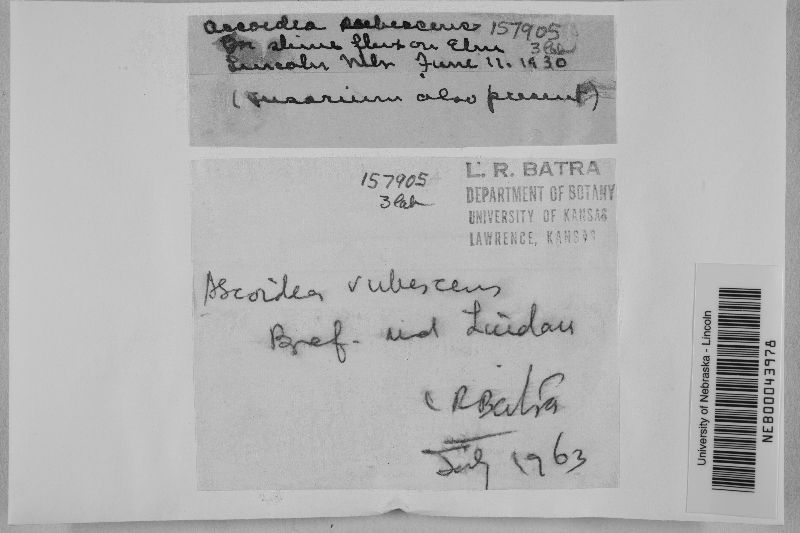 Ascoidea rubescens 157905
On slime flux on Elm 3 Pab
Lincoln Nebr June 11. 1930
(Fusarium also present)
157905
L. R. BATRA
DEPARTMENT OF BOTANY
UNIVERSITY OF KANSAS
LAWRENCE, KANSAS
Ascoidea rubescens
Bref. und Lindau
L R Batra
July 1963
University of Nebraska - Lincoln
NEB00043978